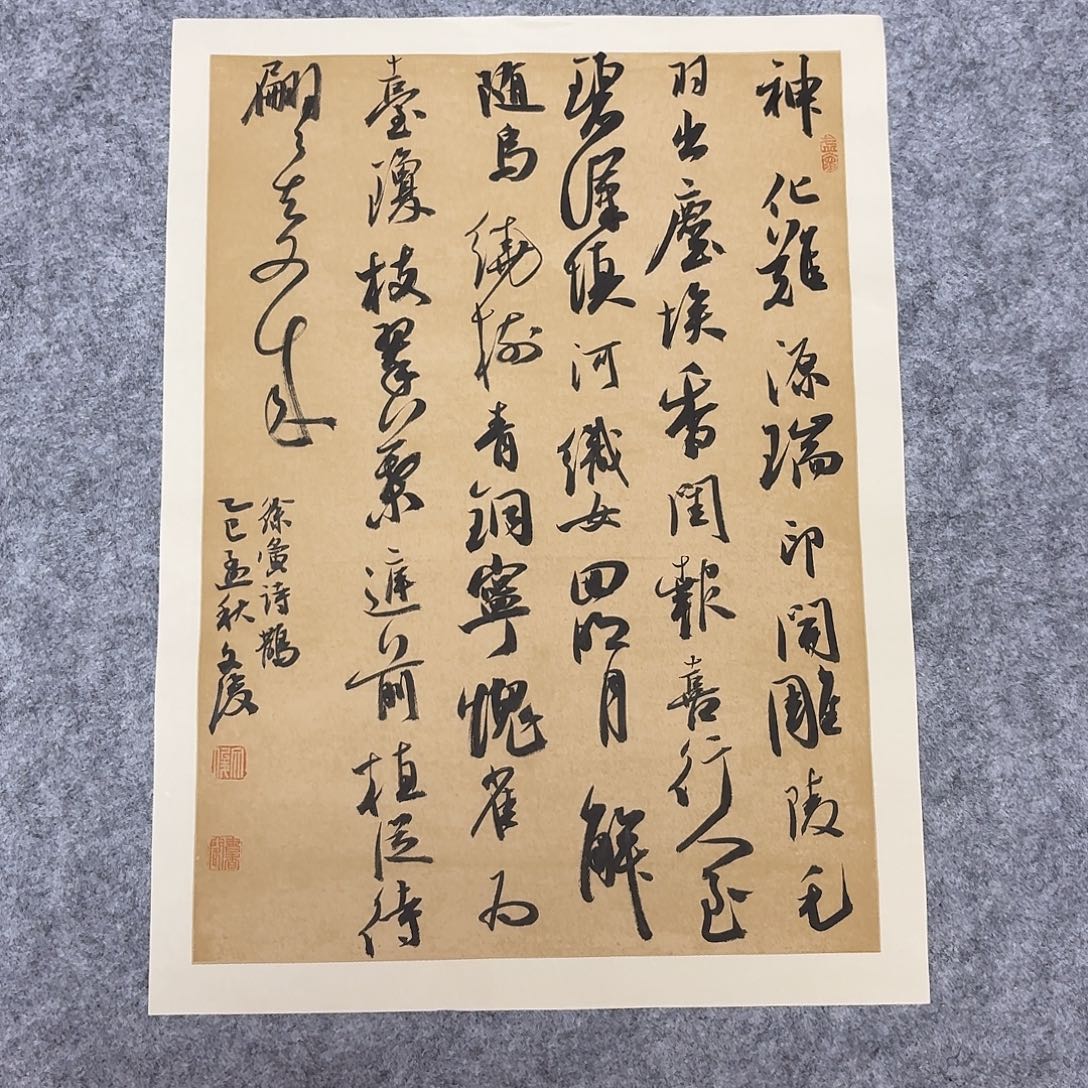 神化難源瑞即開雕陵毛
羽出塵埃香閨報喜行人至
碧漢填河織女回明月解
随烏繞樹青銅寧愧雀为
臺瓊枝翠葉庭前植從待
翩々去又来
徐寅诗鵲
乙巳孟秋文